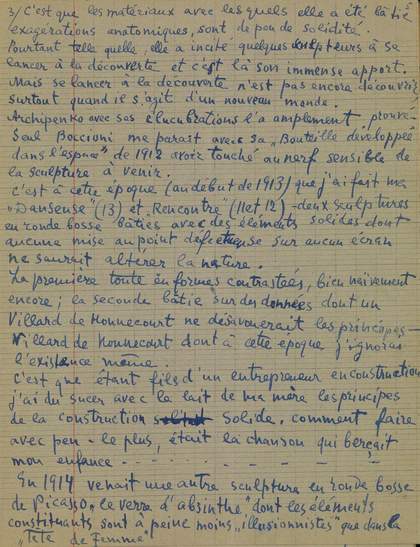 3/ C'est que les matériaux avec lesquels elle a été bâtie
exagerations anatomiques, sont de peu de solidité.
Pourtant telle quelle, elle a incité quelques sculpteurs à se
lancer à la découverte et c'est là son immense apport.
Mais se lancer à la découverte n'est pas encore découvrir
surtout quand il s'agit d'un nouveau monde.
Archipenko avec ses élucubrations l'a amplement prouvé.
Seul Boccioni me parait avec sa „Bouteille développée
dans l'espace" de 1912 avoir touché au nerf sensible de
la sculpture à venir.
C'est à cette époque (au début de 1913) que j'ai fait ma
„Danseuse" (13) et Rencontre" (11 et 12) - deux sculptures
en ronde bosse bâties avec des éléments solides dont
aucune mise au point défectueuse sur aucun écran
ne saurait altérer la nature.
La première toute en formes contrastées, bien naïvement
encore; la seconde bâtie sur des données dont un
Villard de Honnecourt ne désavouerait les principes —
Villard de Honnecourt dont à cette epoque j'ignorais
l'existence même.
C'est que étant fils d'un entrepreneur en construction
j'ai du sucer avec la lait de ma mère les principes
de la construction solide. Comment faire
avec peu - le plus, était la chanson qui berçait
mon enfance - - - - - - - - - -
En 1914 venait une autre sculpture en ronde bosse
de Picasso „le verre d'absinthe" dont les éléments
constituants sont à peine moins „illusionnistes" que dans la
„Tête de Femme"